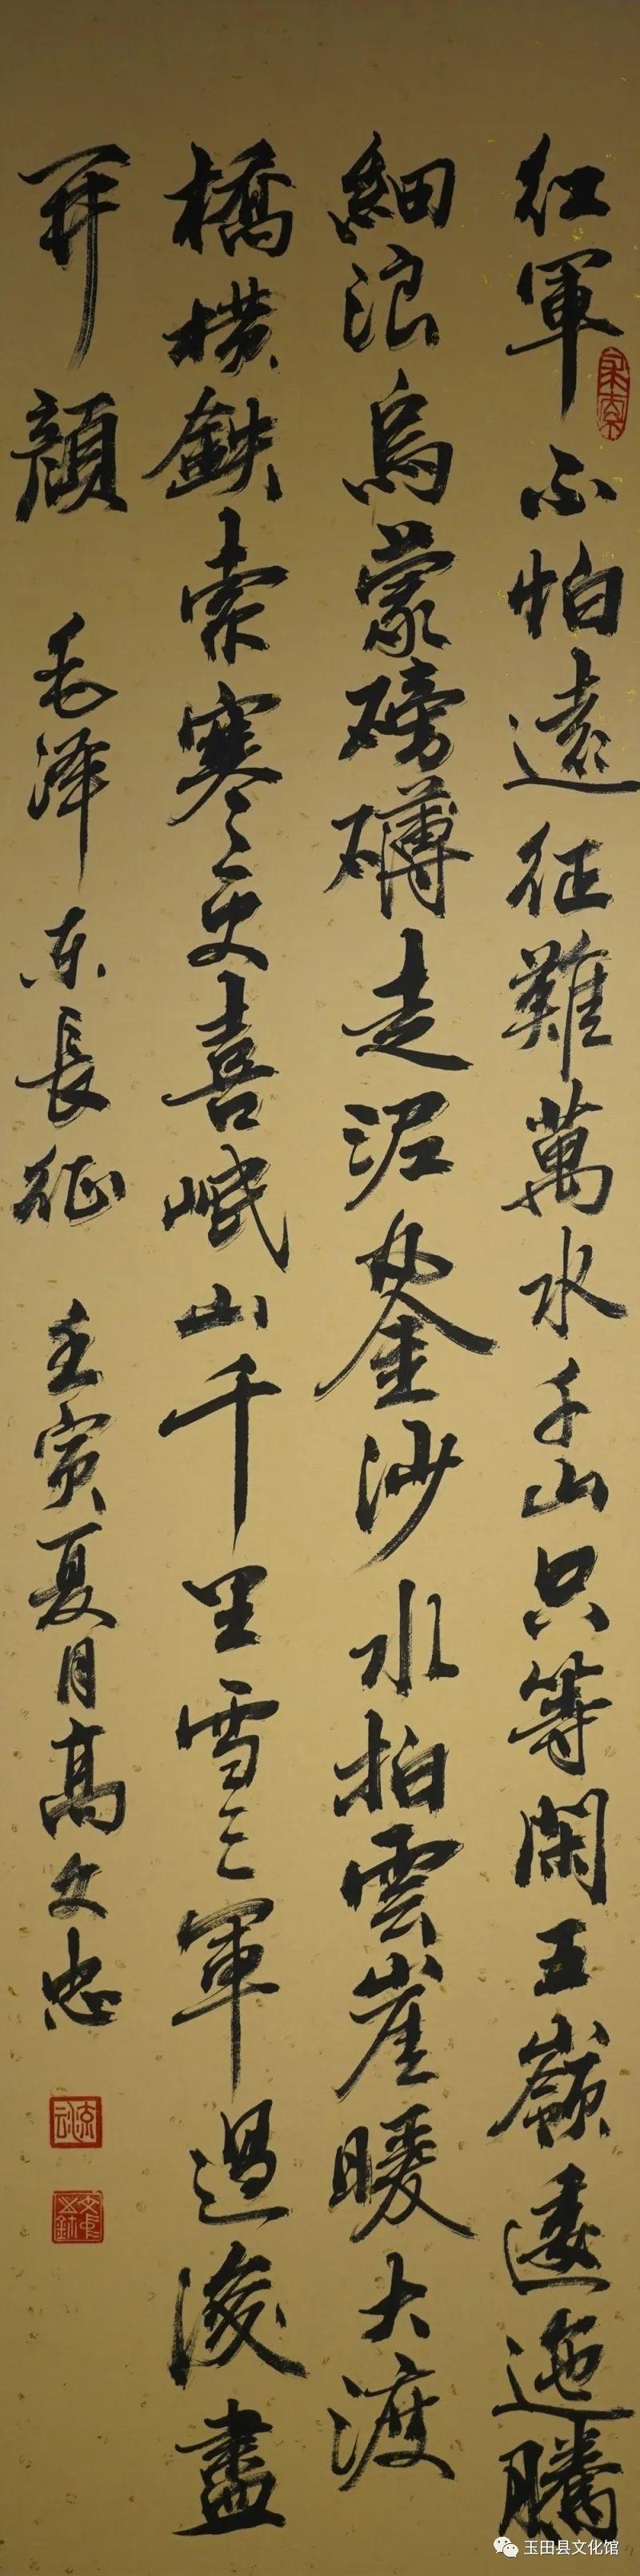 红軍不怕遠征難萬水千山只等閑五嶺逶迤騰
細浪烏蒙磅礴走泥丸金沙水拍雲崖暖大渡
橋横鉄索寒更喜岷山千里雪三軍過後盡
开顔 毛泽东長征 壬寅夏月高文忠
玉田县文化馆